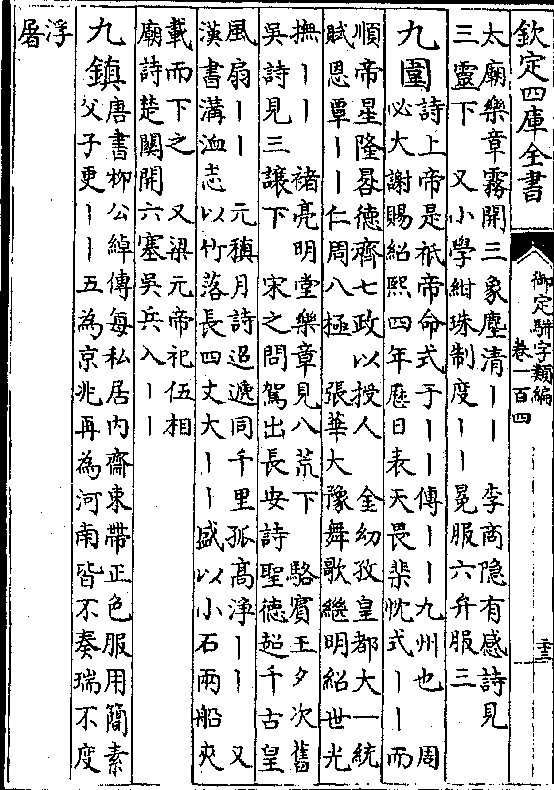 欽定四庫全書
御定駢字類編
卷一百四
三
太廟樂章霧開三象塵清丨丨　李商隱有感詩見
三靈下　又小學紺珠制度丨丨冕服六弁服三
九圍詩上帝是祇帝命式于丨丨傳丨丨九州也　周
必大謝賜紹熙四年歷日表天畏棐忱式丨丨而
順帝星隆晷德齊七政以授人　金幼孜皇都大一統
賦恩覃丨丨仁周八極　張華大豫舞歌繼明紹世光
撫丨丨　褚亮明堂樂章見八荒下　駱賓王夕次舊
吳詩見三讓下　宋之問駕出長安詩聖德超千古皇
風扇丨丨　元稹月詩迢遞同千里孤高淨丨丨　又
漢書溝洫志以竹落長四丈大丨丨盛以小石兩船夾
載而下之　又梁元帝祀伍相
廟詩楚關開六塞吳兵入丨丨
九鎮唐書柳公綽傳每私居內齋束帶正色服用簡素
父子更丨丨五為京兆再為河南皆不奏瑞不度
浮
屠